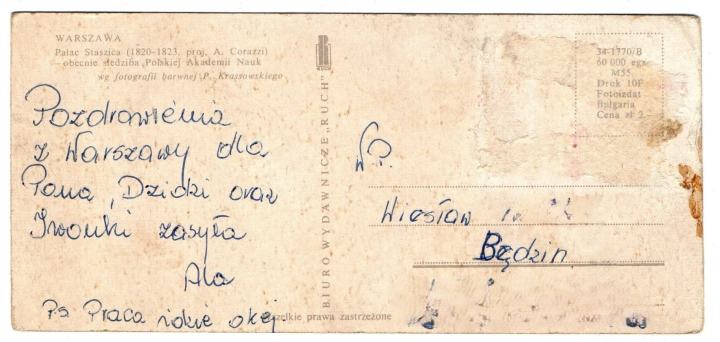 WARSZAWA
Pałac Staszica (1820-1823, proj. A. Corazzi)
— obecnie siedziba Polskiej Akademii Nauk
wg fotografii barwnej P. Krassowskiego
Pozdrowienia
z Warszawy dla
Pana, Dzidki oraz
Iwonki zasyła
Ala
Ps Praca idzie okej.
BIURO WYDAWNICZE „RUCH"
34-1770/B
60 000 egz.
M55
Druk 10F
Fotoizdat
Bułgaria
Cena zł 2.-
W.P.
Wiesław
Będzin
wszelkie prawa zastrzeżone